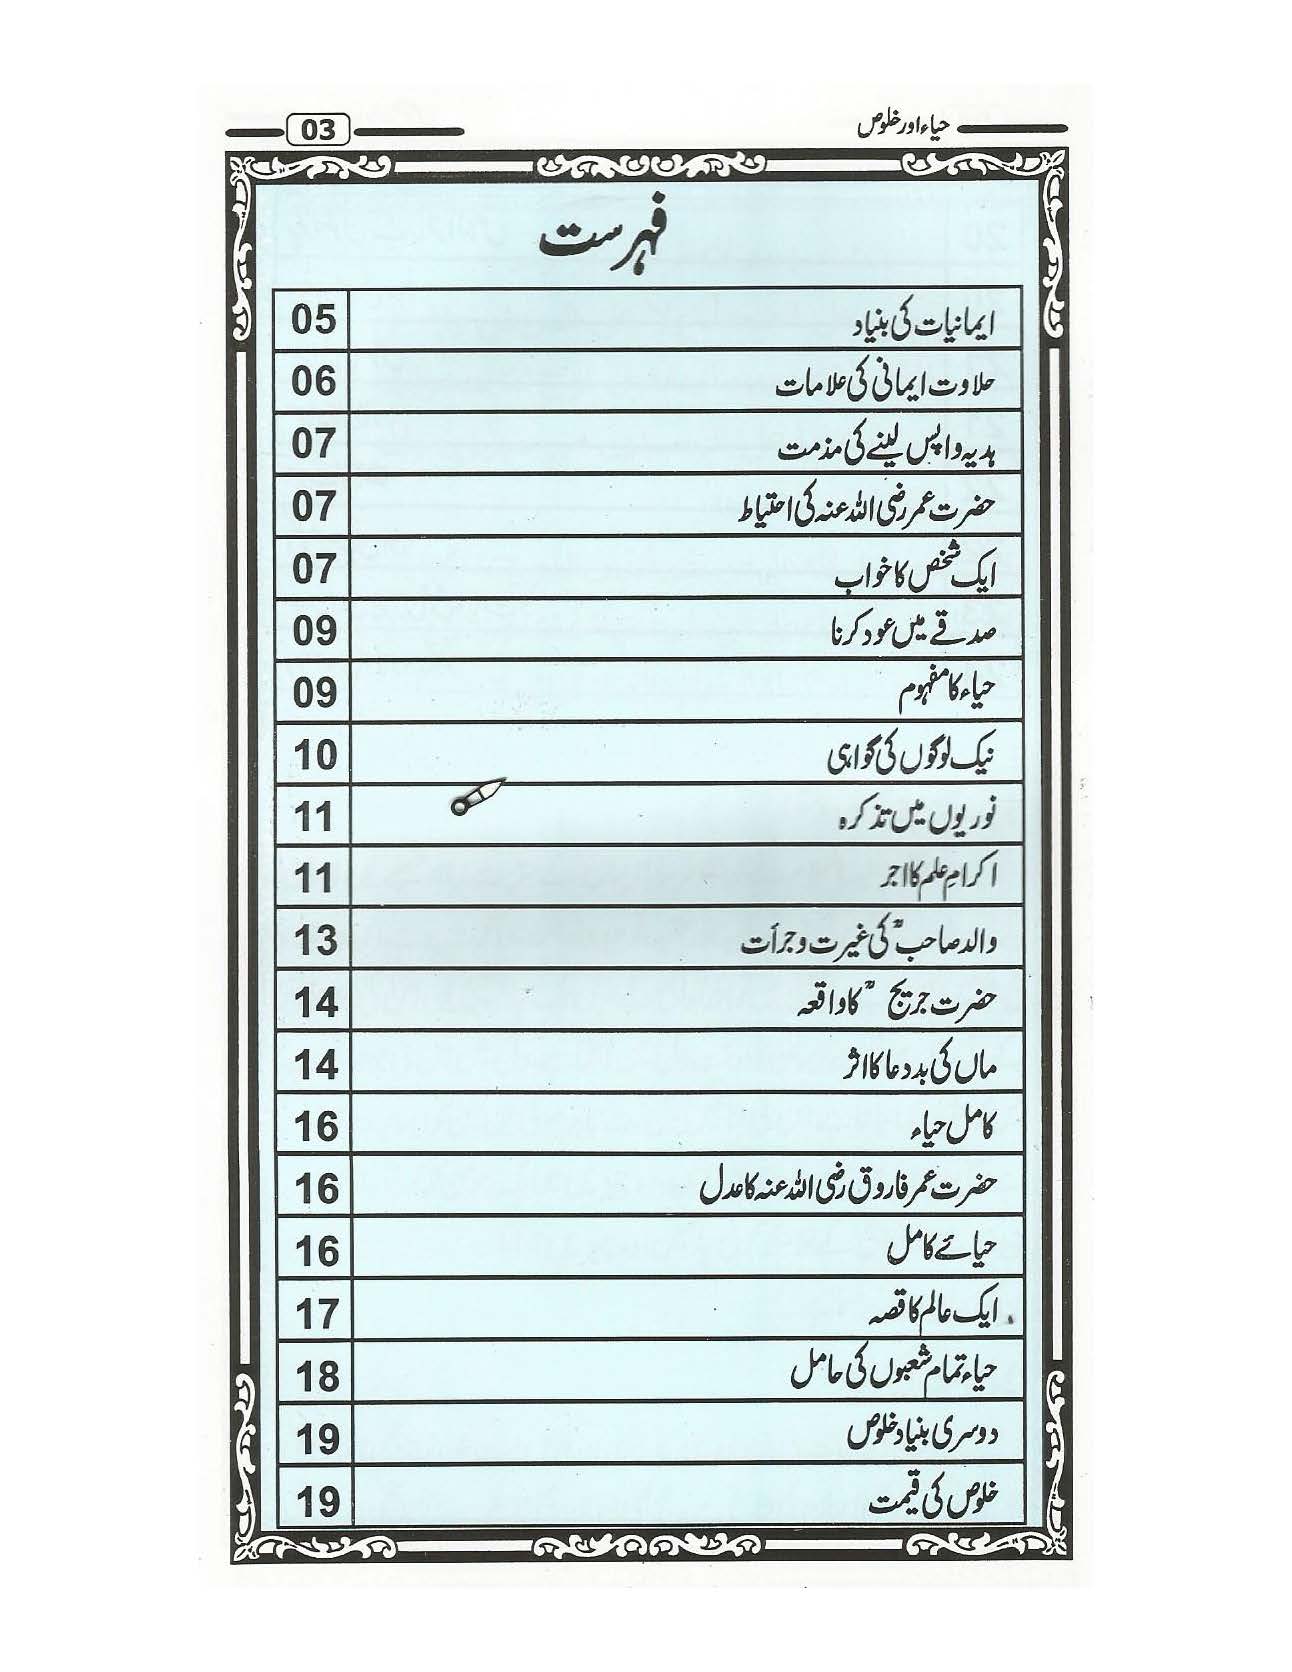 حیاء اور خلوص 03
فہرست
ایمانیات کی بنیاد 05
حلاوت ایمانی کی علامات 06
ہدیہ واپس لینے کی مذمت 07
حضرت عمر رضی اللہ عنہ کی احتیاط 07
ایک شخص کا خواب 07
صدقے میں عود کرنا 09
حیاء کا مفہوم 09
نیک لوگوں کی گواہی 10
نوریوں میں تذکرہ 11
اکرامِ علم کا اجر 11
والد صاحبؒ کی غیرت و جرأت 13
حضرت جریجؒ کا واقعہ 14
ماں کی بددعا کا اثر 14
کامل حیاء 16
حضرت عمر فاروق رضی اللہ عنہ کا عدل 16
حیائے کامل 16
ایک عالم کا قصہ 17
حیاء تمام شعبوں کی حامل 18
دوسری بنیاد خلوص 19
خلوص کی قیمت 19